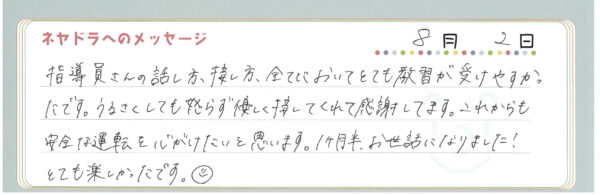 ネヤドラへのメッセージ
8月 2日
指導員さんの話し方、接し方、全てにおいてとても教習が受けやすかっ
たです。うるさくしても怒らず優しく接してくれて感謝してます。これからも
安全な運転を心がけたいと思います。1ヶ月半、お世話になりました!
とても楽しかったです。☺